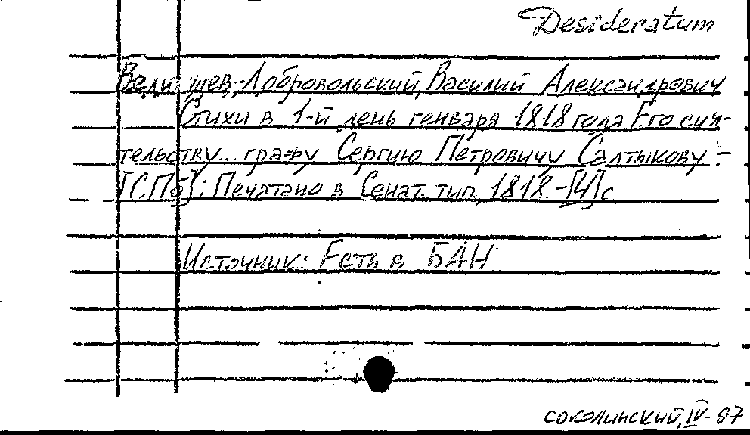 Desideratum
Вельяшев-Добровольский, Василий Александрович
Стихи в 1-й день генваря 1818 года Его сия-
тельству... графу Сергию Петровичу Салтыкову.-
[СПб]: Печатано в Сенат. тип., 1818.-[4]с
Источник: Есть в БАН
Соколинский, IV-87